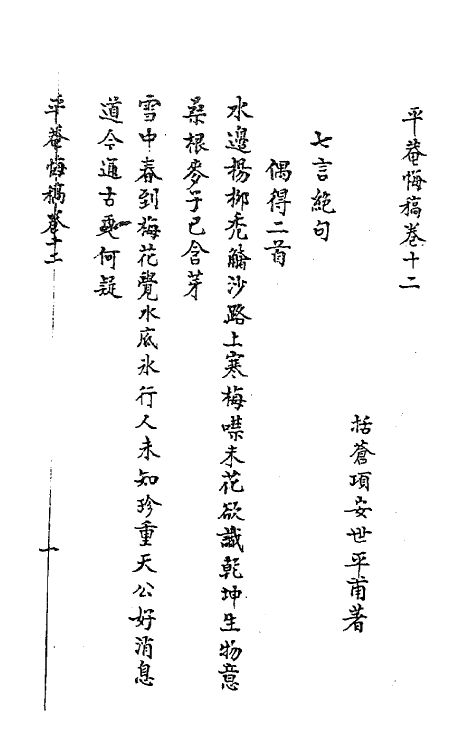 平菴悔稿卷十二
括蒼項安世平甫著
七言絕句
偶得二首
水邊楊柳禿觰沙路上寒梅噤未花欲識乾坤生物意
桑根麥子已含芽
雪中春到梅花覺水底氷行人未知珍重天公好消息
道今通古更何疑
平菴悔稿卷十二
一